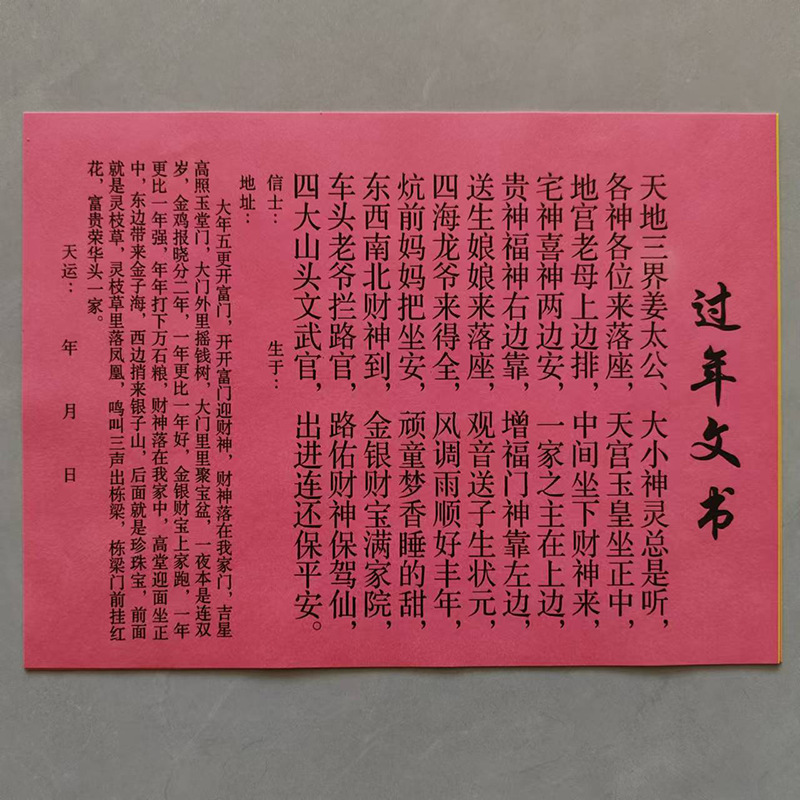 过年文书
天地三界姜太公、大小神灵总是听，
各神各位来落座，天宫玉皇坐正中，
地宫老母上边排，中间坐下财神来，
宅神喜神两边安，一家之主在上边，
贵神福神右边靠，增福门神靠左边，
送生娘娘来落座，观音送子生状元，
四海龙爷来得全，风调雨顺好丰年，
炕前妈妈把坐安，顽童梦香睡的甜，
东西南北财神到，金银财宝满家院，
车头老爷拦路官，路佑财神保驾仙，
四大山头文武官，出进连还保平安。
信士： 生于：
地址：
大年五更开富门，开开富门迎财神，财神落在我家门，吉星
高照玉堂门，大门外里摇钱树，大门里里聚宝盆，一夜本是连双
岁，金鸡报晓分二年，一年更比一年好，金银财宝上家跑，一年
更比一年强，年年打下万石粮，财神落在我家中，高堂迎面坐正
中，东边带来金子海，西边捎来银子山，后面就是珍珠宝，前面
就是灵枝草，灵枝草里落凤凰，鸣叫三声出栋梁，栋梁门前挂红
花，富贵荣华头一家。
天运： 年 月 日